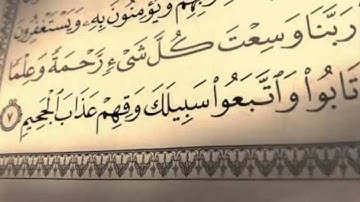 رَبِّهِمْ وَيُؤْمِنُونَ بِهِۦ وَيَسْتَغْفِرُونَ
رَبَّنَا وَسِعْتَ كُلَّ شَىْءٍ رَّحْمَةً وَعِلْمًا
تَابُوا۟ وَٱتَّبَعُوا۟ سَبِيلَكَ وَقِهِمْ عَذَابَ ٱلْجَحِيمِ ٧